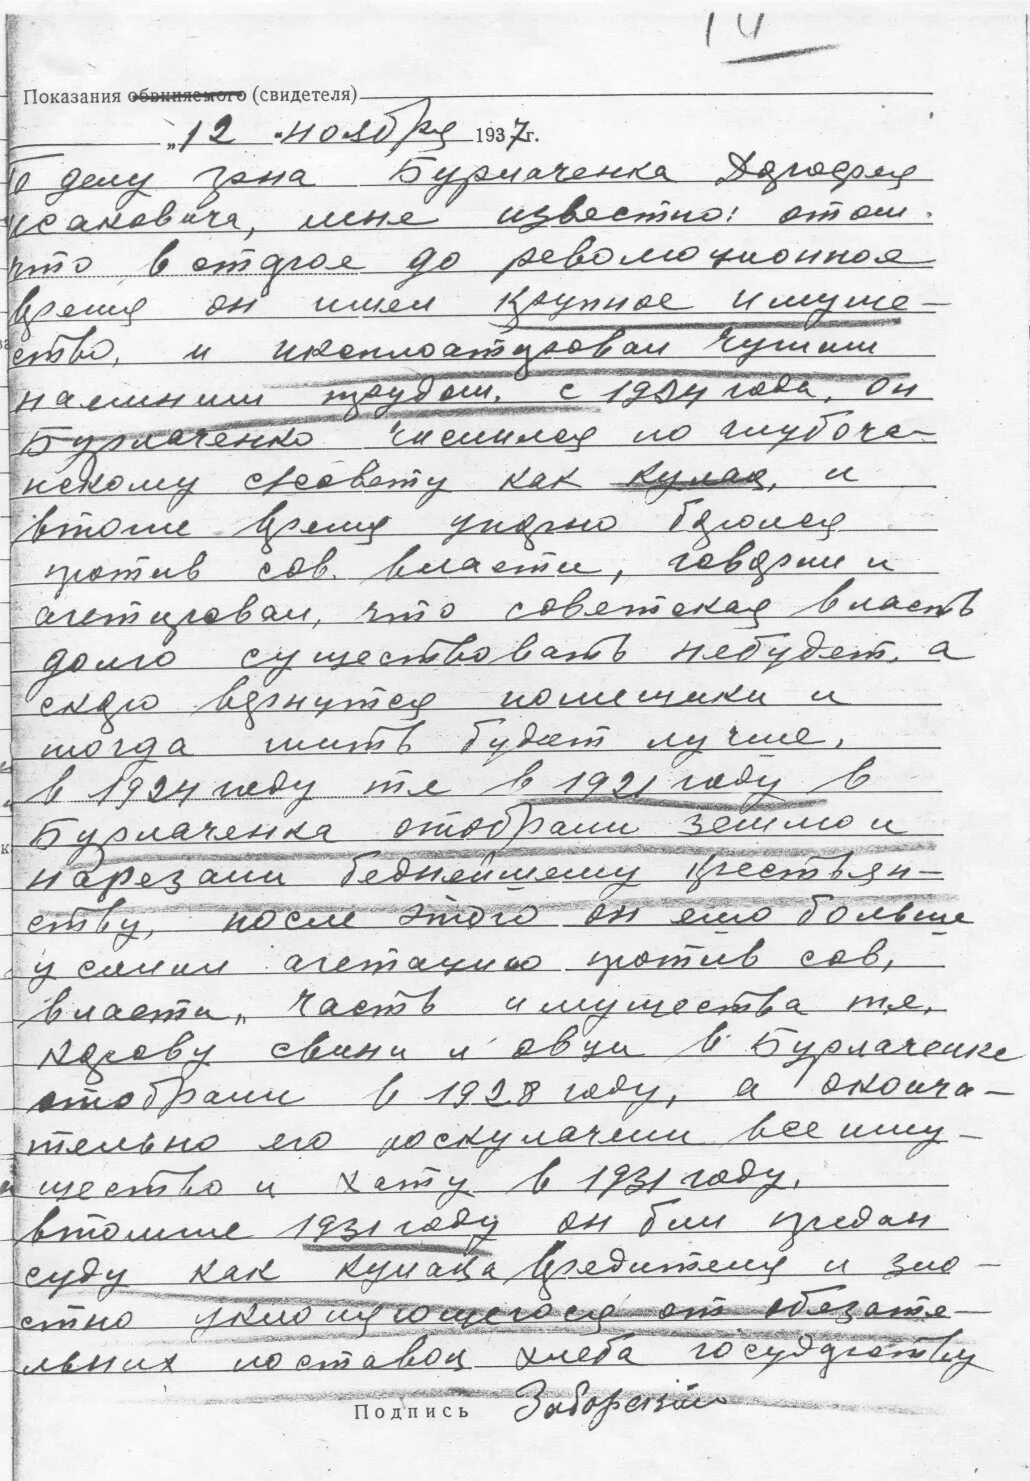 14
Показания обвиняемого (свидетеля)
„12 " ноября 1937г.
По делу гр-на Бурлаченка Дорофея
Исаковича, мне известно: отом.
что встарое до революционное
время он имел крупное имуще-
ство, и иксплоатировал чужим
наемним трудом. с 1924 года, он
Бурлаченко числился по глубоча-
нскому с/совету как кулак, и
втоже время упорно боролся
против сов. власти, говорил и
агетировал, что советская власть
долго существовать небудет, а
скоро вернутся помещики и
тогда жить будет лучше,
в 1924 году те в 1921 году в
Бурлаченка отобрали землю и
нарезали беднейшему крестьян-
ству, после этого он ещо больше
усилил агетацию против сов,
власти„ часть имущества т.е.
корову свини и овци в Бурлаченке
отобрали в 1928 году, а оконча-
тельно его роскулачили все иму-
щество и хату в 1931 году.
втомже 1931 году он бил предан
суду как кулака вредителя и зло-
стно уклоняющегося от обязате-
льних поставок хлеба государству
Подпись